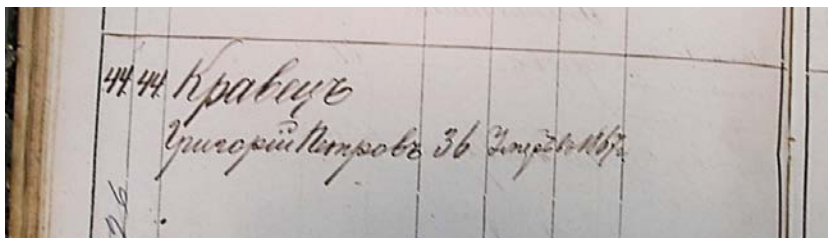 44 44 Кравецъ
Григорій Петровъ 36 Умеръ въ 1867г.
26